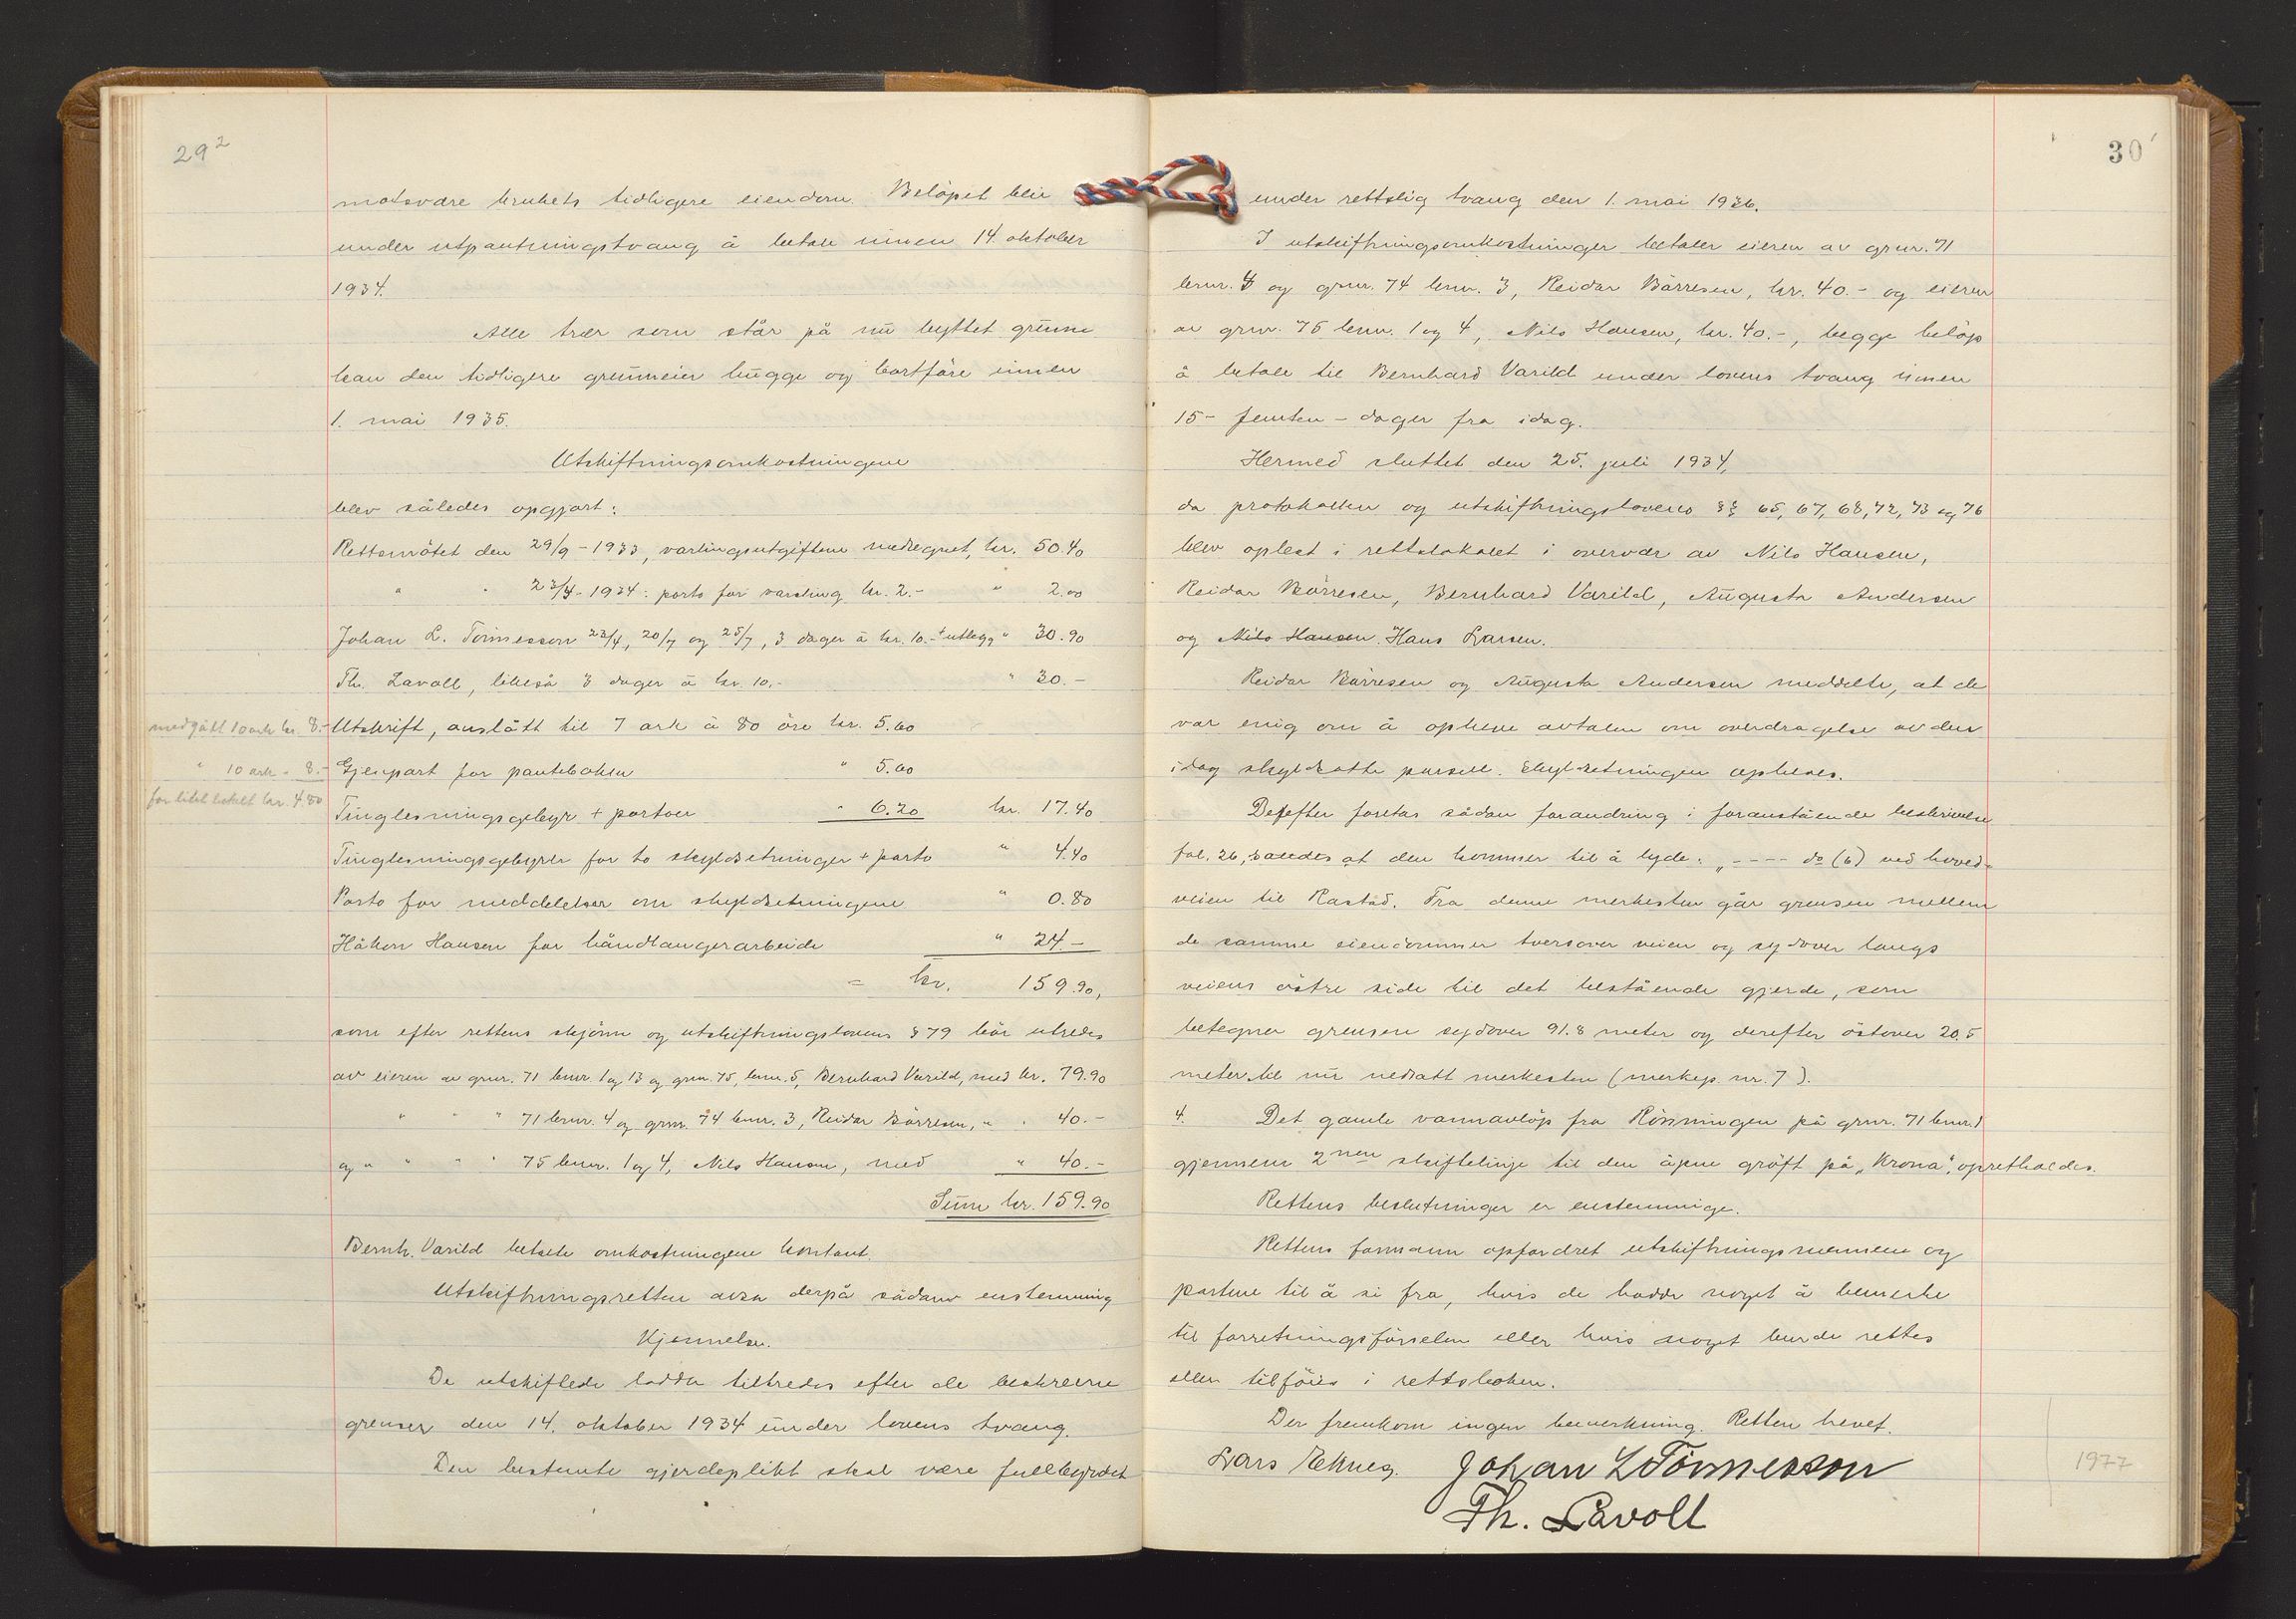 29²
motsvare brukets tidligere eiendom. Beløpet blir
under utpantningstvang å betale innen 14. oktober
1934.
Alle trær som står på nu byttet grunn
kan den tidligere grunneier hugge og bortføre innen
1. mai 1935.
Utskiftningsomkostningene
blev således opgjort:
Rettsmötet den 29/9 - 1933, varslingsutgiftene medregnet, kr. 50.40
" " 23/4 - 1934: porto for varsling kr. 2.- " 2.00
Johan L. Tönnesson 23/4, 20/7 og 25/7, 3 dager à kr. 10.- + utlegg " 30.90
Th. Lavoll, likeså 3 dager à kr. 10.- " 30.-
medgått 10 ark kr. 8.- Utskrift, anslått til 7 ark à 80 öre kr. 5.60
" 10 ark " 8.- Gjenpart for panteboken " 5.60
for litet betalt kr. 4.80
Tinglesningsgebyr + portoer " 6.20 kr. 17.40
Tinglesningsgebyrer for to skyldsetninger + porto " 4.40
Porto for meddelelser om skyldsetningene " 0.80
Håkon Hansen for håndlangerarbeide " 24.-
= kr. 159.90,
som efter rettens skjönn og utskiftningslovens § 79 bör utredes
av eieren av grnr. 71 bnr. 1 og 13 og grnr. 75, bnr. 5, Bernhard Varild, med kr. 79.90
" " " 71 bnr. 4 og grnr. 74 bnr. 3, Reidar Börresen, " " 40.-
og " " " " 75 bnr. 1 og 4, Nils Hansen, med " 40.-
Sum kr. 159.90
Bernh. Varild betalte omkostningene kontant.
Utskiftningsretten avsa derpå sådan enstemmig
Kjennelse.
De utskiftede lodder tiltredes efter de beskrevne
grenser den 14. oktober 1934 under lovens tvang.
Den bestemte gjerdeplikt skal være fullbyrdet
30
under rettslig tvang den 1. mai 1936.
I utskiftningsomkostninger betaler eieren av grnr. 71
bnr. 4 og grnr. 74 bnr. 3, Reidar Börresen, kr. 40.- og eieren
av grnr. 75 bnr. 1 og 4, Nils Hansen, kr. 40.-, begge beløp
å betale til Bernhard Varild under lovens tvang innen
15 - femten - dager fra idag.
Hermed sluttet den 25. juli 1934,
da protokollen og utskiftningslovens §§ 65, 67, 68, 72, 73 og 76
blev oplest i rettslokalet i overvær av Nils Hansen,
Reidar Börresen, Bernhard Varild, Augusta Andersen
og Nils Hansen. Hans Larsen.
Reidar Börresen og Augusta Andersen meddelte, at de
var enig om å opheve avtalen om overdragelse av den
idag skyldsatte parsell. Skyldsetningen opheves.
Derefter foretas sådan forandring i foranstående beskrivelse
fol. 26, således at den kommer til å lyde: „---- do (6) ved hoved-
veien til Rastad. Fra denne merkesten går grensen mellem
de samme eiendommer tversover veien og sydover langs
veiens östre side til det bestående gjerde, som
betegner grensen sydover 91.8 meter og derefter östover 20.5
meter til nu nedsatt merkesten (merkep. nr. 7).
4. Det gamle vannavlöp fra Rönningen på grnr. 71 bnr. 1
gjennem 2nen skiftelinje til den åpne gröft på „Krona", opretholdes.
Rettens beslutninger er enstemmige.
Rettens formann opfordret utskiftningsmennene og
partene til å si fra, hvis de hadde noget å bemerke
til forretningsförselen eller hvis noget burde rettes
eller tilföies i rettsboken.
Der fremkom ingen bemerkning. Retten hevet.
Lars Eknes. Johan L Tönnesson
Th. Lavoll
1977